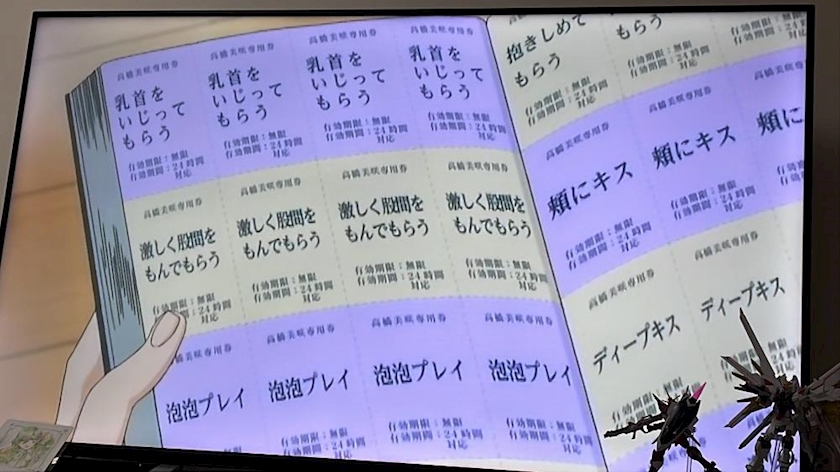 高橋美咲専用券
乳首を
いじって
もらう
有効期限：無限
有効期間：24時間
対応
高橋美咲専用券
乳首を
いじって
もらう
有効期限：無限
有効期間：24時間
対応
高橋美咲専用券
乳首を
いじって
もらう
有効期限：無限
有効期間：24時間
対応
高橋美咲専用券
乳首を
いじって
もらう
有効期限：無限
有効期間：24時間
対応
高橋美咲専用券
激しく股間を
もんでもらう
有効期限：無限
有効期間：24時間
対応
高橋美咲専用券
激しく股間を
もんでもらう
有効期限：無限
有効期間：24時間
対応
高橋美咲専用券
激しく股間を
もんでもらう
有効期限：無限
有効期間：24時間
対応
高橋美咲専用券
激しく股間を
もんでもらう
有効期限：無限
有効期間：24時間
対応
高橋美咲専用券
泡泡プレイ
有効期限：無限
高橋美咲専用券
泡泡プレイ
有効期限：無限
有効期間：24時間
対応
高橋美咲専用券
泡泡プレイ
有効期限：無限
有効期間：24時間
対応
高橋美咲専用券
泡泡プレイ
有効期限：無限
有効期間：24時間
対応
抱きしめて
もらう
有効期限：無限
有効期間：24時間
対応
もらう
有効期限：無限
有効期間：24時間
対応
高橋美咲専用券
頬にキス
有効期限：無限
有効期間：24時間
対応
高橋美咲専用券
頬にキス
有効期限：無限
有効期間：24時間
対応
高橋美咲
頬に
高橋美咲専用券
ディープキス
有効期限：無限
高橋美咲専用券
ディープキス